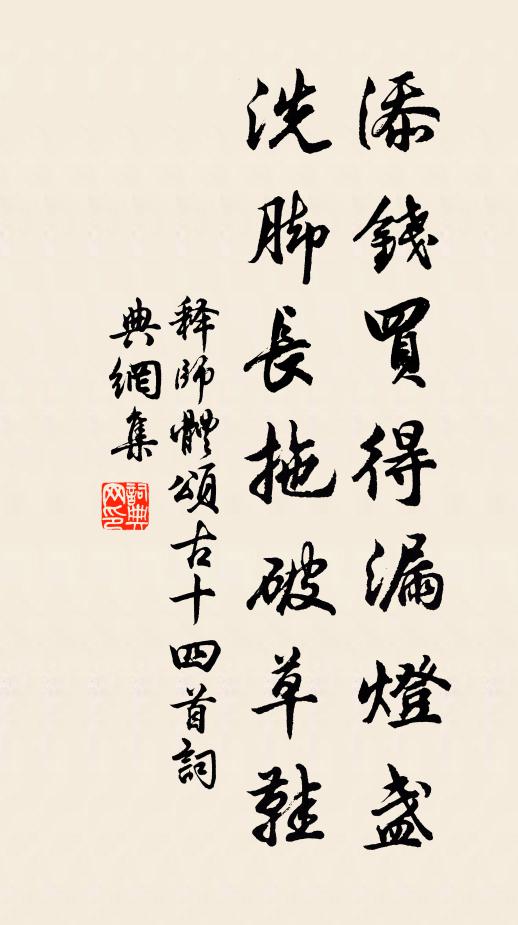 添錢買得漏燈盞
洗脚長拖破草鞋
释師體頌古十四首詞
典網集
詞典
网印